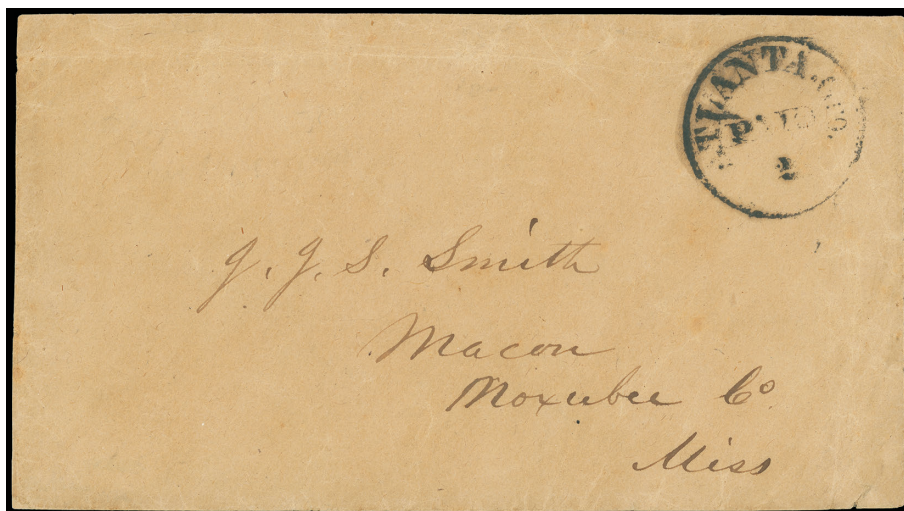 ATLANTA. GEO.
PAID
2
J. J. S. Smith
Macon
Noxubee Co
Miss